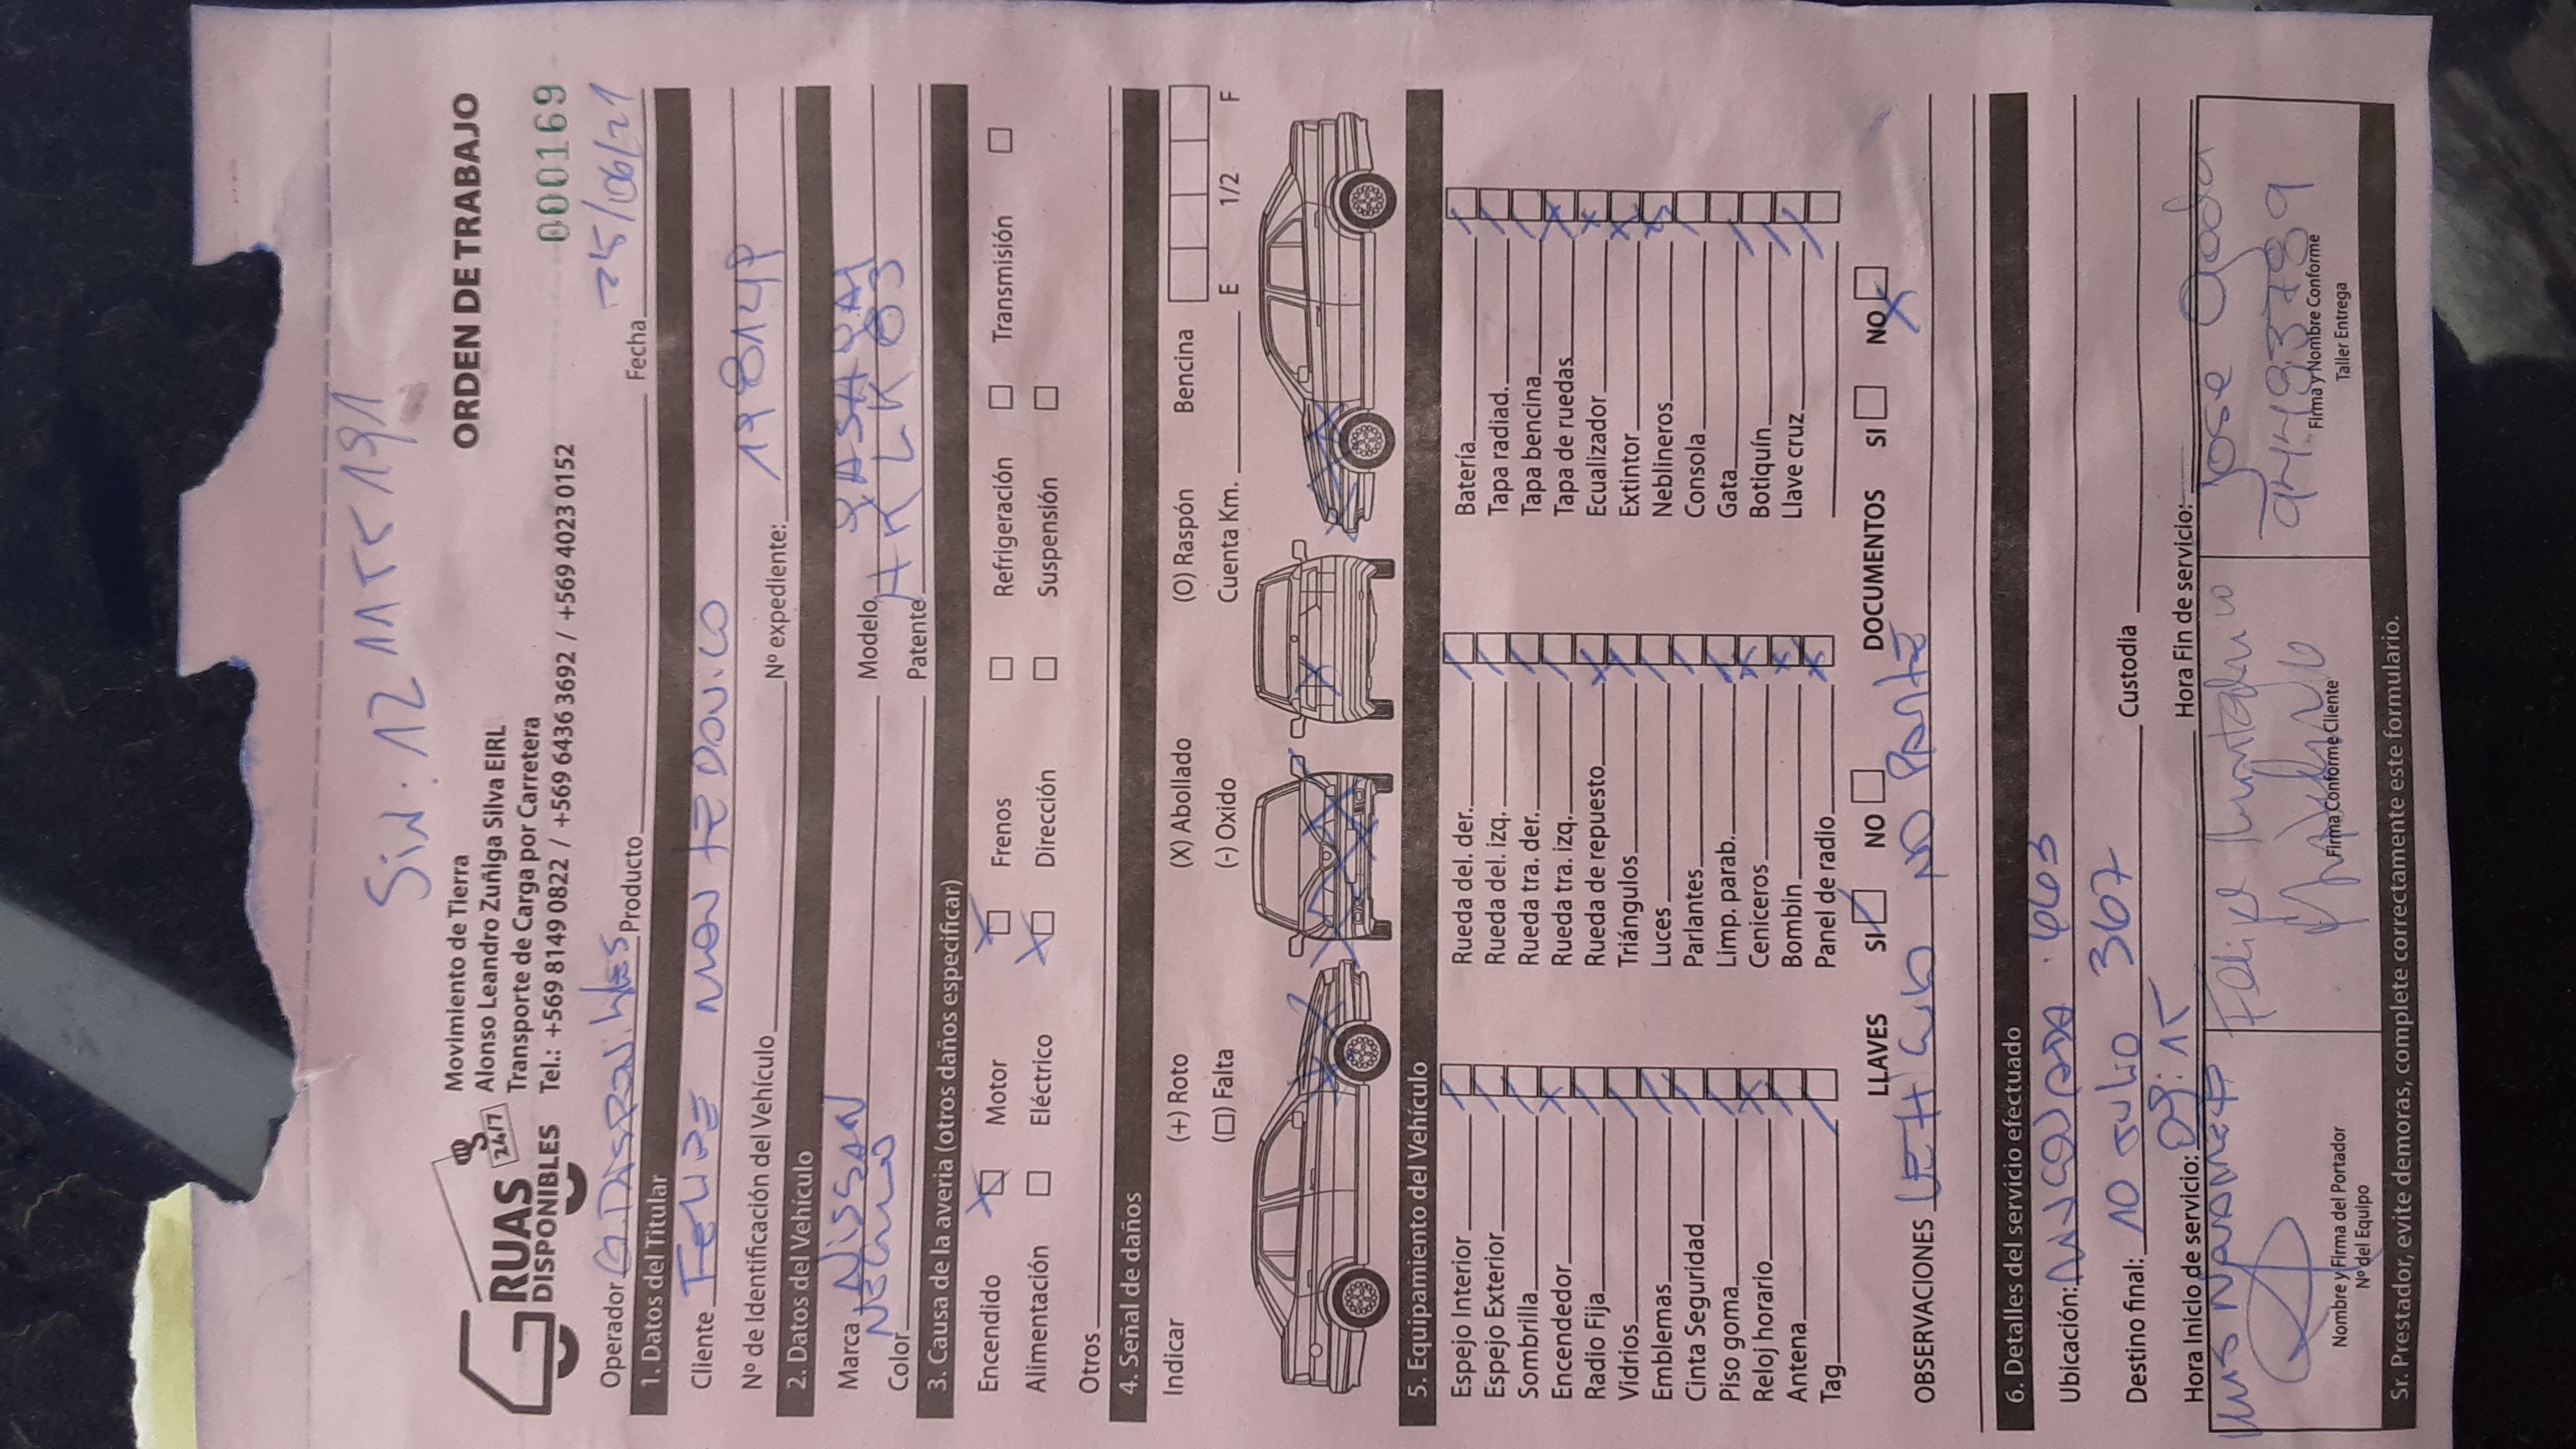 Sin: 12 11 15 191
Movimiento de Tierra
Alonso Leandro Zuñiga Silva EIRL
Transporte de Carga por Carretera
Tel.: +569 8149 0822 / +569 6436 3692 / +569 4023 0152
GRUAS
DISPONIBLES
24/7
ORDEN DE TRABAJO
0000169
Operador G. Disponibles Producto Fecha 25/06/21
1. Datos del Titular
Cliente Felipe Montedonico
Nº de Identificación del Vehículo Nº expediente: 198149
2. Datos del Vehículo
Marca Nissan Modelo Qashqai
Color Negro Patente HKLK 83
3. Causa de la averia (otros daños especificar)
Encendido Motor Frenos Refrigeración Transmisión
Alimentación Eléctrico Dirección Suspensión
Otros
4. Señal de daños
Indicar (+) Roto (X) Abollado (O) Raspón Bencina
(□) Falta (-) Oxido Cuenta Km. E 1/2 F
5. Equipamiento del Vehículo
Espejo Interior Rueda del. der. Batería
Espejo Exterior Rueda del. izq. Tapa radiad.
Sombrilla Rueda tra. der. Tapa bencina
Encendedor Rueda tra. izq. Tapa de ruedas
Radio Fija Rueda de repuesto Ecualizador
Vidrios Triángulos Extintor
Emblemas Luces Neblineros
Cinta Seguridad Parlantes Consola
Piso goma Limp. parab. Gata
Reloj horario Ceniceros Botiquín
Antena Bombin Llave cruz
Tag Panel de radio
LLAVES SI NO DOCUMENTOS SI NO
OBSERVACIONES Vehiculo no Parte
6. Detalles del servicio efectuado
Ubicación:
Destino final: 10 Julio 367 Custodia
Hora Inicio de servicio: 09:15 Hora Fin de servicio:
Luis Navarrete Felipe Montedonico Jose Ojeda
944937839
Nombre y Firma del Portador
Nº del Equipo
Firma Conforme Cliente
Firma y Nombre Conforme
Taller Entrega
Sr. Prestador, evite demoras, complete correctamente este formulario.